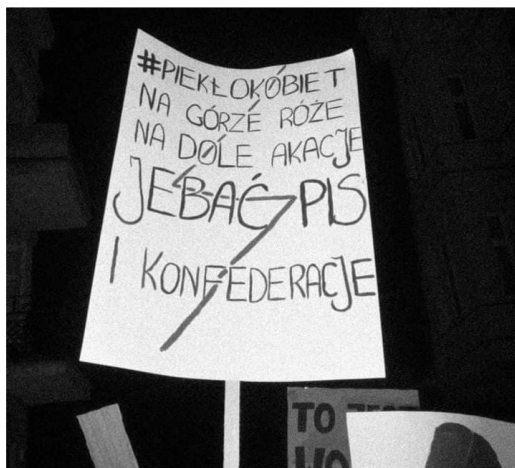 #PIEKŁOKOBIET
NA GÓRZE RÓŻE
NA DOLE AKACJE
JEBAĆ PIS
I KONFEDERACJE
TO